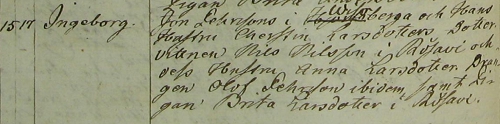 1517 Ingeborg.
Jon Pehrssons i Berga och Hans
Hustru Cherstin Larsdotters Dotter.
Vittnen Nils Nilsson i Råsave och
dess Hustru Anna Larsdotter Drän-
gen Olof Pehrson ibidem, samt Pi-
gan Brita Larsdotter i Råsave.